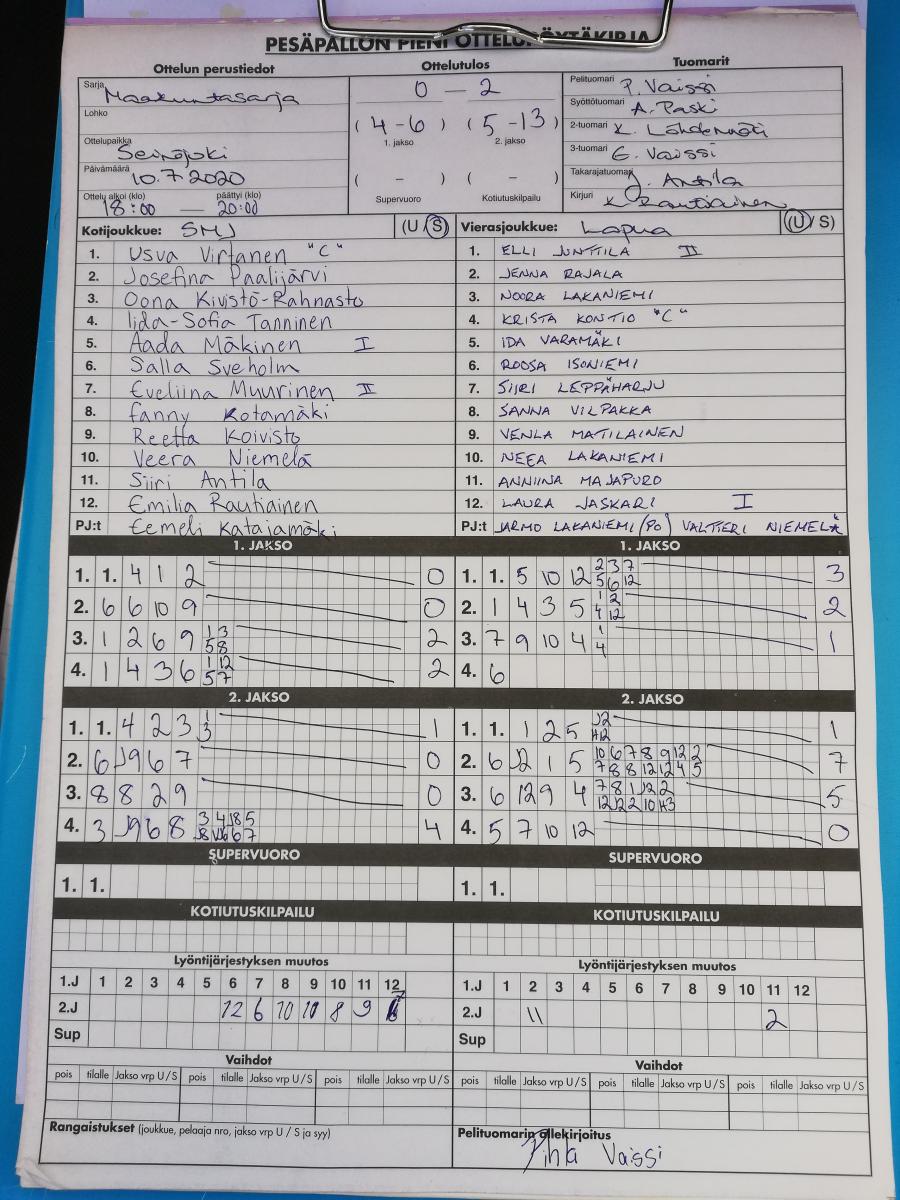 PESÄPALLON PIENI OTTELUPÖYTÄKIRJA
Ottelun perustiedot
Sarja Maakuntasarja
Lohko
Ottelupaikka Seinäjoki
Päivämäärä 10.7.2020
Ottelu alkoi (klo) päättyi (klo)
18:00 — 20:00
Ottelutulos
0 — 2
( 4-6 ) ( 5-13 )
1. jakso 2. jakso
( - ) ( - )
Supervuoro Kotiutuskilpailu
Tuomarit
Pelituomari P. Vaissi
Syöttötuomari A. Paski
2-tuomari K. Lähdemäki
3-tuomari E. Vaissi
Takarajatuomari J. Antila
Kirjuri K. Rautiainen
Kotijoukkue: SMJ (U/S)
1. Usva Virtanen "C"
2. Josefina Paalijärvi
3. Oona Kivistö-Rahnasto
4. Iida-Sofia Tanninen
5. Aada Mäkinen I
6. Salla Sveholm
7. Eveliina Muurinen II
8. Fanny Kotamäki
9. Reetta Koivisto
10. Veera Niemelä
11. Siiri Antila
12. Emilia Rautiainen
PJ:t Eemeli Katajamäki
Vierasjoukkue: Lapua (U/S)
1. ELLI JUNTTILA II
2. JENNA RAJALA
3. NOORA LAKANIEMI
4. KRISTA KONTIO "C"
5. IDA VARAMÄKI
6. ROOSA ISONIEMI
7. SIIRI LEPPÄHARJU
8. SANNA VILPAKKA
9. VENLA MATILAINEN
10. NEEA LAKANIEMI
11. ANNIINA MAJAPURO
12. LAURA JASKARI I
PJ:t JARMO LAKANIEMI (PO) VALTTERI NIEMELÄ
1. JAKSO
1. 1. 4 1 2 0
2. 6 6 10 9 0
3. 1 2 6 9 1 3 2
5 8
4. 1 4 3 6 1 12 2
5 7
2. JAKSO
1. 1. 4 2 3 1 1
3
2. 6 J9 6 7 0
3. 8 8 2 9 0
4. 3 J9 6 8 3 4 J8 5 4
J8 J6 6 7
SUPERVUORO
1. 1.
KOTIUTUSKILPAILU
Lyöntijärjestyksen muutos
1.J 1 2 3 4 5 6 7 8 9 10 11 12
2.J 12 6 10 11 8 9 7
Sup
Vaihdot
pois tilalle Jakso vrp U/S pois tilalle Jakso vrp U/S pois tilalle Jakso vrp U/S
Rangaistukset (joukkue, pelaaja nro, jakso vrp U / S ja syy)
1. JAKSO
1. 1. 5 10 12 2 3 7 3
5 6 12
2. 1 4 3 5 1 2 2
4 12
3. 7 9 10 4 1 1
4
4. 6
2. JAKSO
1. 1. 1 2 5 J2 1
H2
2. 6 J2 1 5 10 6 7 8 9 12 2 7
7 8 8 12 12 4 5
3. 6 12 9 4 7 8 1 J2 2 5
12 J2 2 10 H3
4. 5 7 10 12 0
SUPERVUORO
1. 1.
KOTIUTUSKILPAILU
Lyöntijärjestyksen muutos
1.J 1 2 3 4 5 6 7 8 9 10 11 12
2.J 11 2
Sup
Vaihdot
pois tilalle Jakso vrp U/S pois tilalle Jakso vrp U/S pois tilalle Jakso vrp U/S
Pelituomarin allekirjoitus
Pihla Vaissi